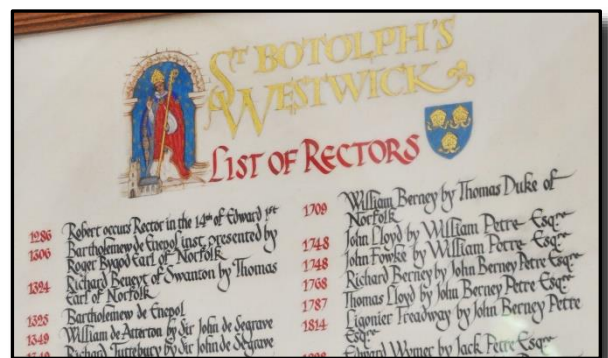 ST BOTOLPH'S
WESTWICK
LIST OF RECTORS
1286 Robert occurs Rector in the 14th of Edward 1st
1306 Bartholomew de Enepol inst. presented by
Roger Bygod Earl of Norfolk
1324 Richard Beneyt of Swanton by Thomas
Earl of Norfolk
1325 Bartholomew de Enepol
1349 William de Atterton by Sir John de Segrave
1349 Richard Tuttebury by Sir John de Segrave
1709 William Berney by Thomas Duke of
Norfolk
1748 John Lloyd by William Petre Esqre
1748 John Fowke by William Petre Esqre
1768 Richard Berney by John Berney Petre Esqre
1787 Thomas Lloyd by John Berney Petre Esqre
1814 Ligonier Treadway by John Berney Petre
Esqre
Edward Wymer by Jack Petre Esqre